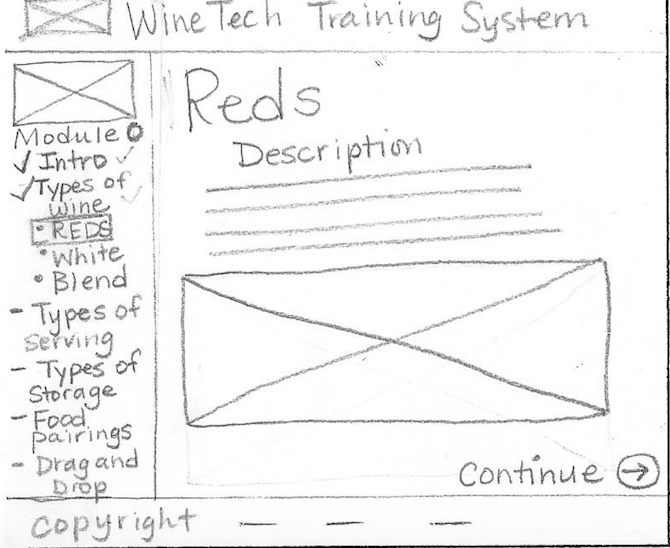 WineTech Training System
Module
Intro
Types of
wine
• REDS
• White
• Blend
- Types of
serving
- Types of
Storage
- Food
pairings
- Drag and
Drop
Reds
Description
Continue
Copyright